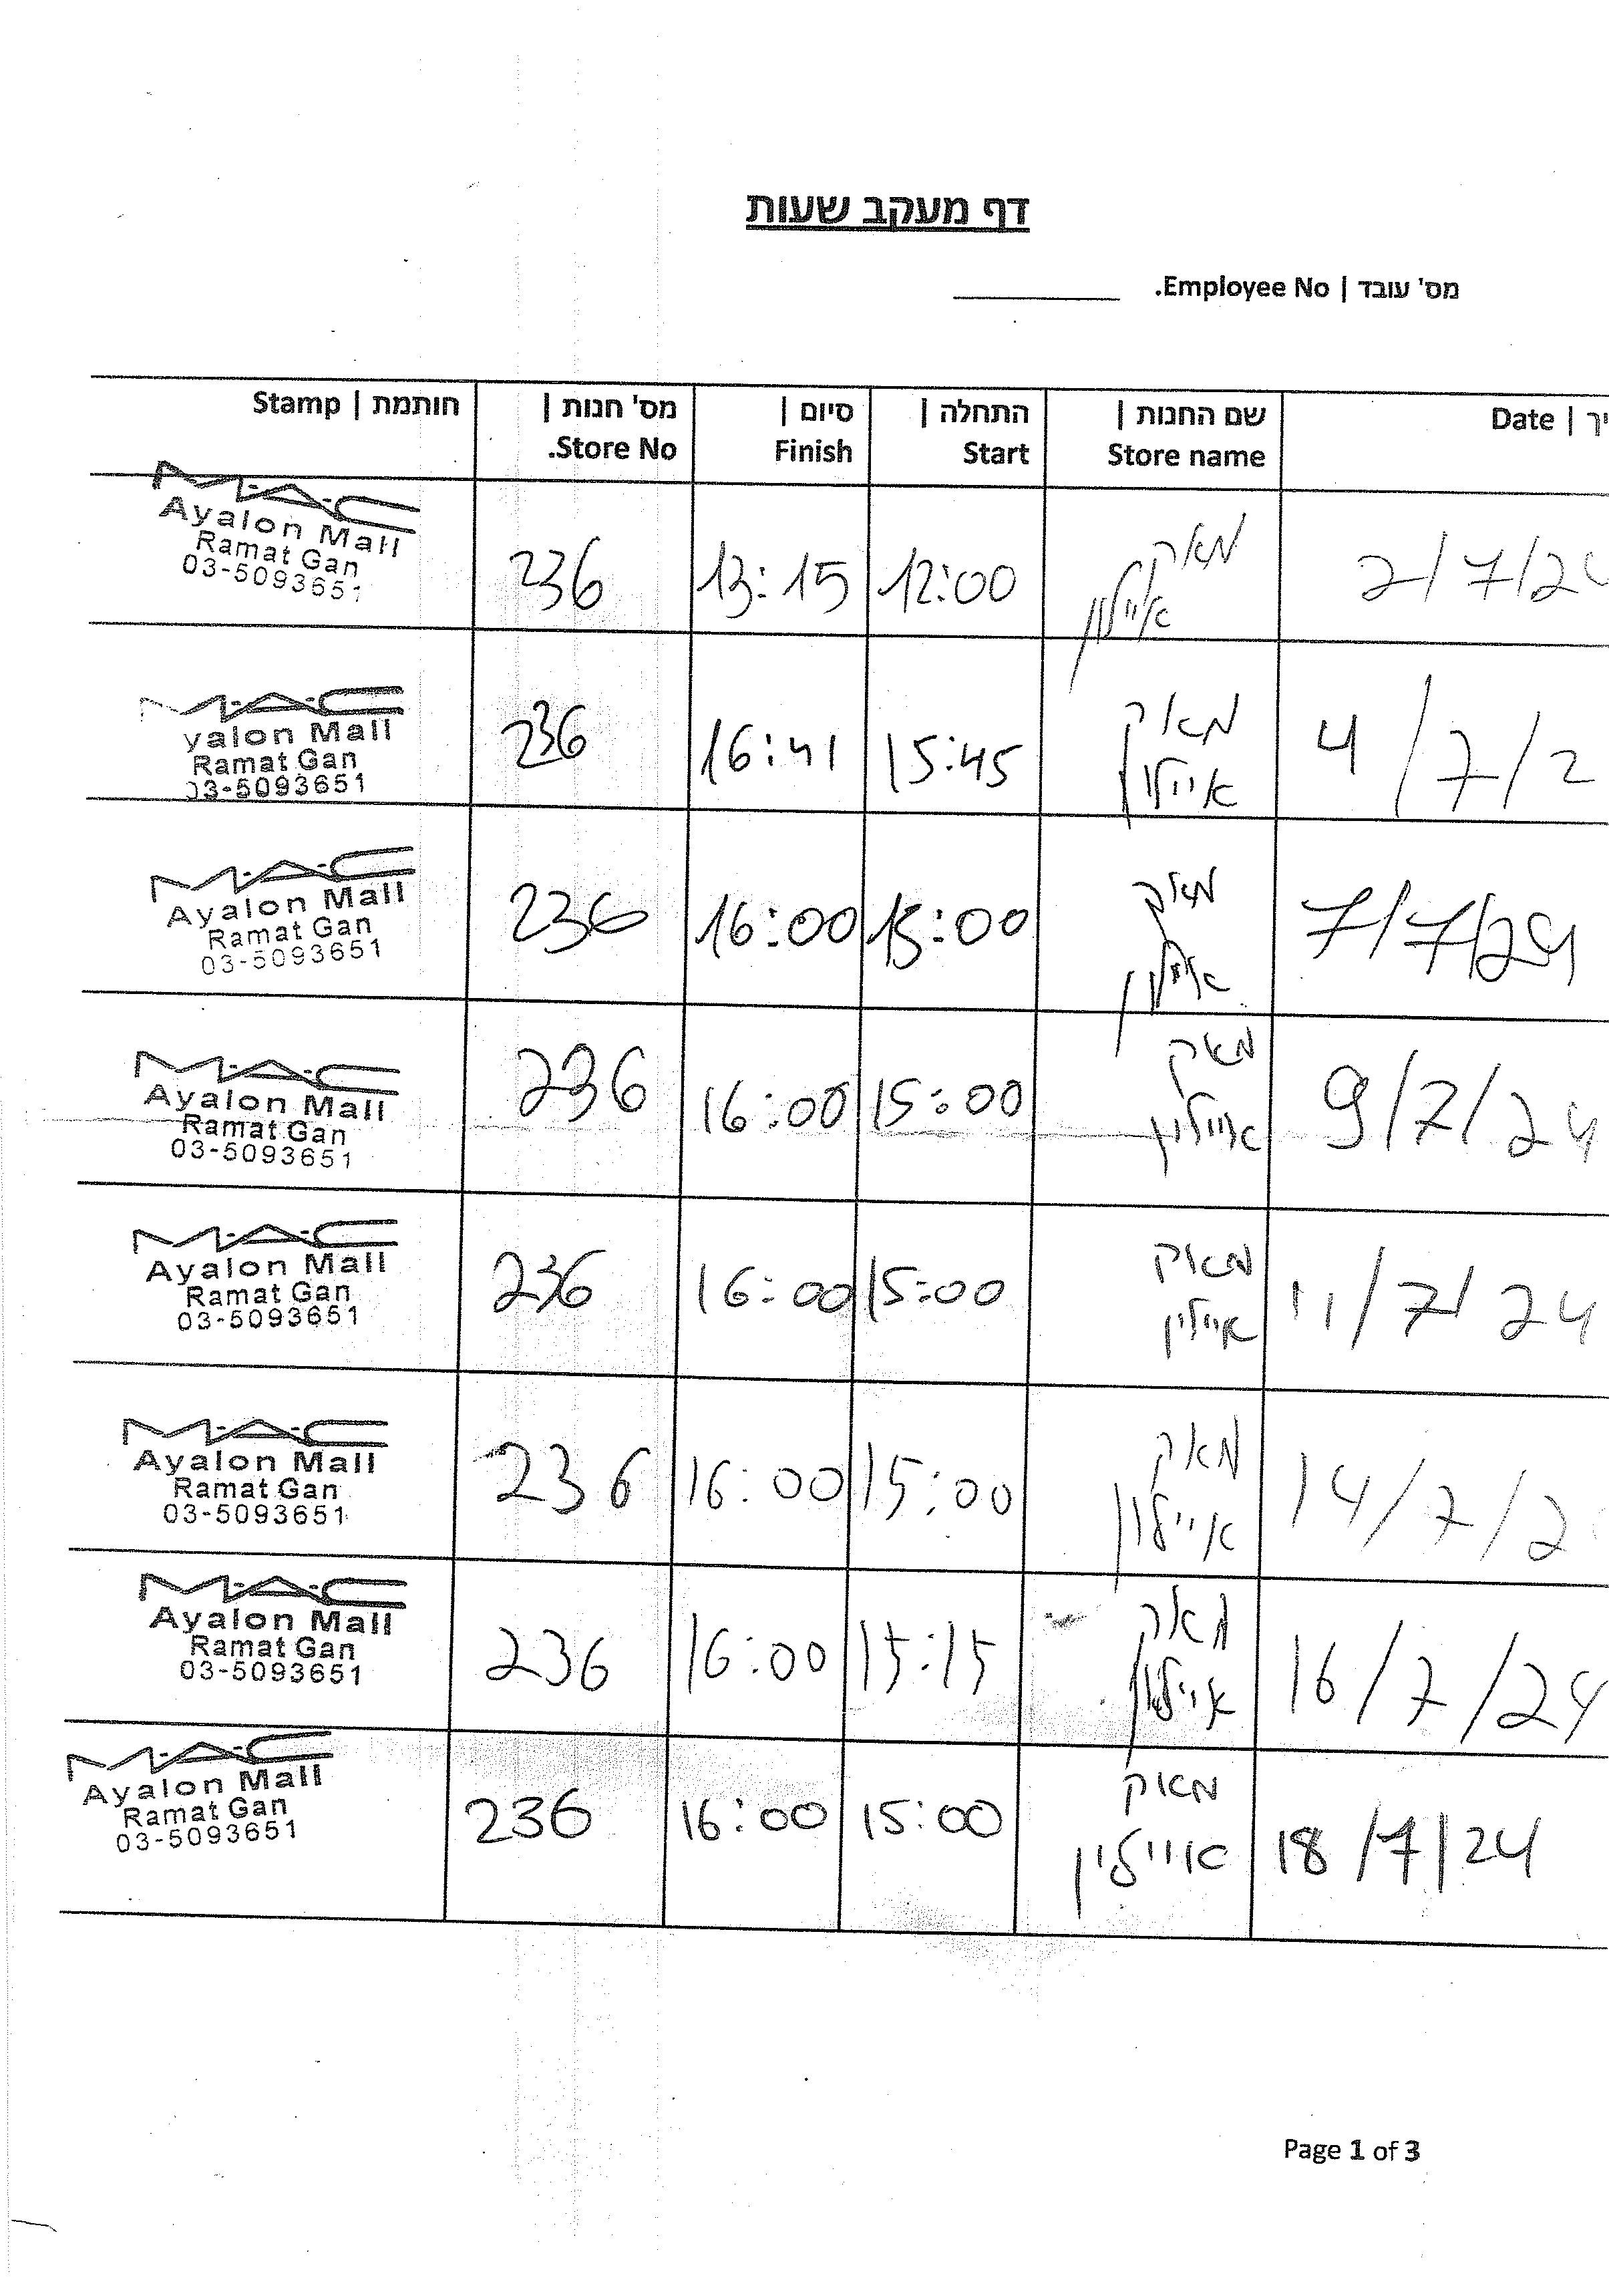 דף מעקב שעות
מס' עובד | Employee No.
יך | Date
שם החנות | Store name
התחלה | Start
סיום | Finish
מס' חנות | Store No.
חותמת | Stamp
2/7/24
מאק
איילון
12:00
13:15
236
M·A·C
Ayalon Mall
Ramat Gan
03-5093651
4/7/2
מאק
איילון
15:45
16:41
236
M·A·C
yalon Mall
Ramat Gan
03-5093651
7/7/24
מאק
איילון
15:00
16:00
236
M·A·C
Ayalon Mall
Ramat Gan
03-5093651
9/7/24
מאק
איילון
15:00
16:00
236
M·A·C
Ayalon Mall
Ramat Gan
03-5093651
11/7/24
מאק
איילון
15:00
16:00
236
M·A·C
Ayalon Mall
Ramat Gan
03-5093651
14/7/2
מאק
איילון
15:00
16:00
236
M·A·C
Ayalon Mall
Ramat Gan
03-5093651
16/7/24
מאק
איילון
15:15
16:00
236
M·A·C
Ayalon Mall
Ramat Gan
03-5093651
18/7/24
מאק
איילון
15:00
16:00
236
M·A·C
Ayalon Mall
Ramat Gan
03-5093651
Page 1 of 3